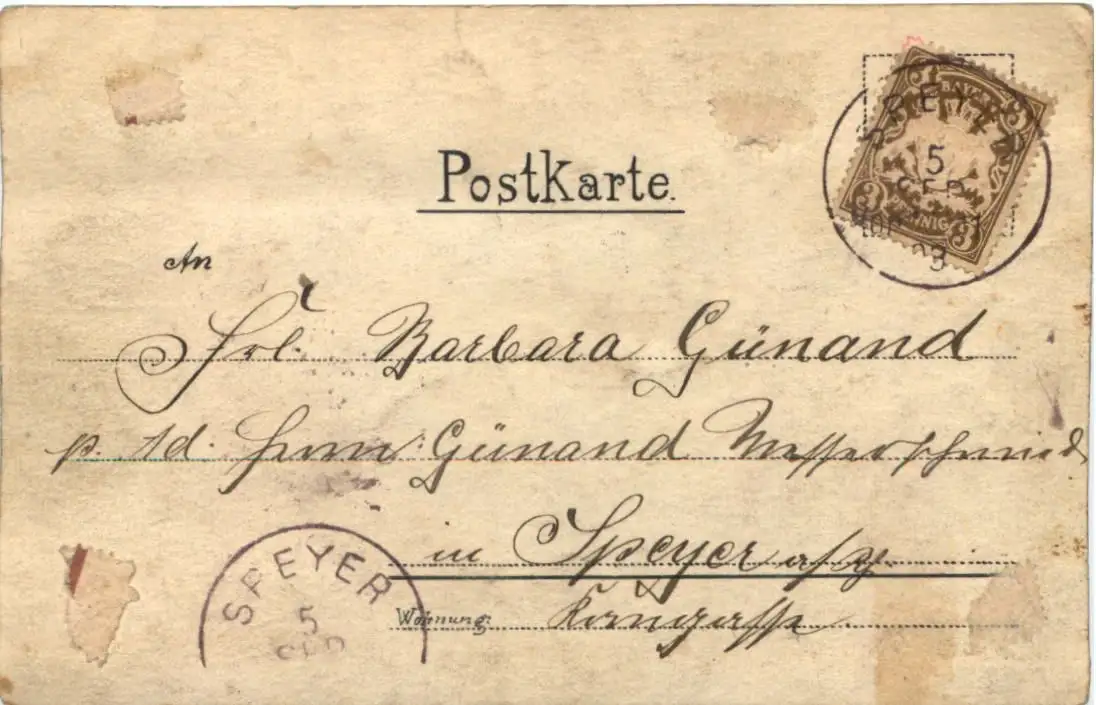 Postkarte.
BAYERN
3 3
PFENNIG
3 3
SPEYER
5
SEP
An
Frl. Barbara Günand
p. Ad. Herrn Günand Messerschmied
in Speyer a/Rh.
Wohnung: Korngasse
SPEYER
5
SEP